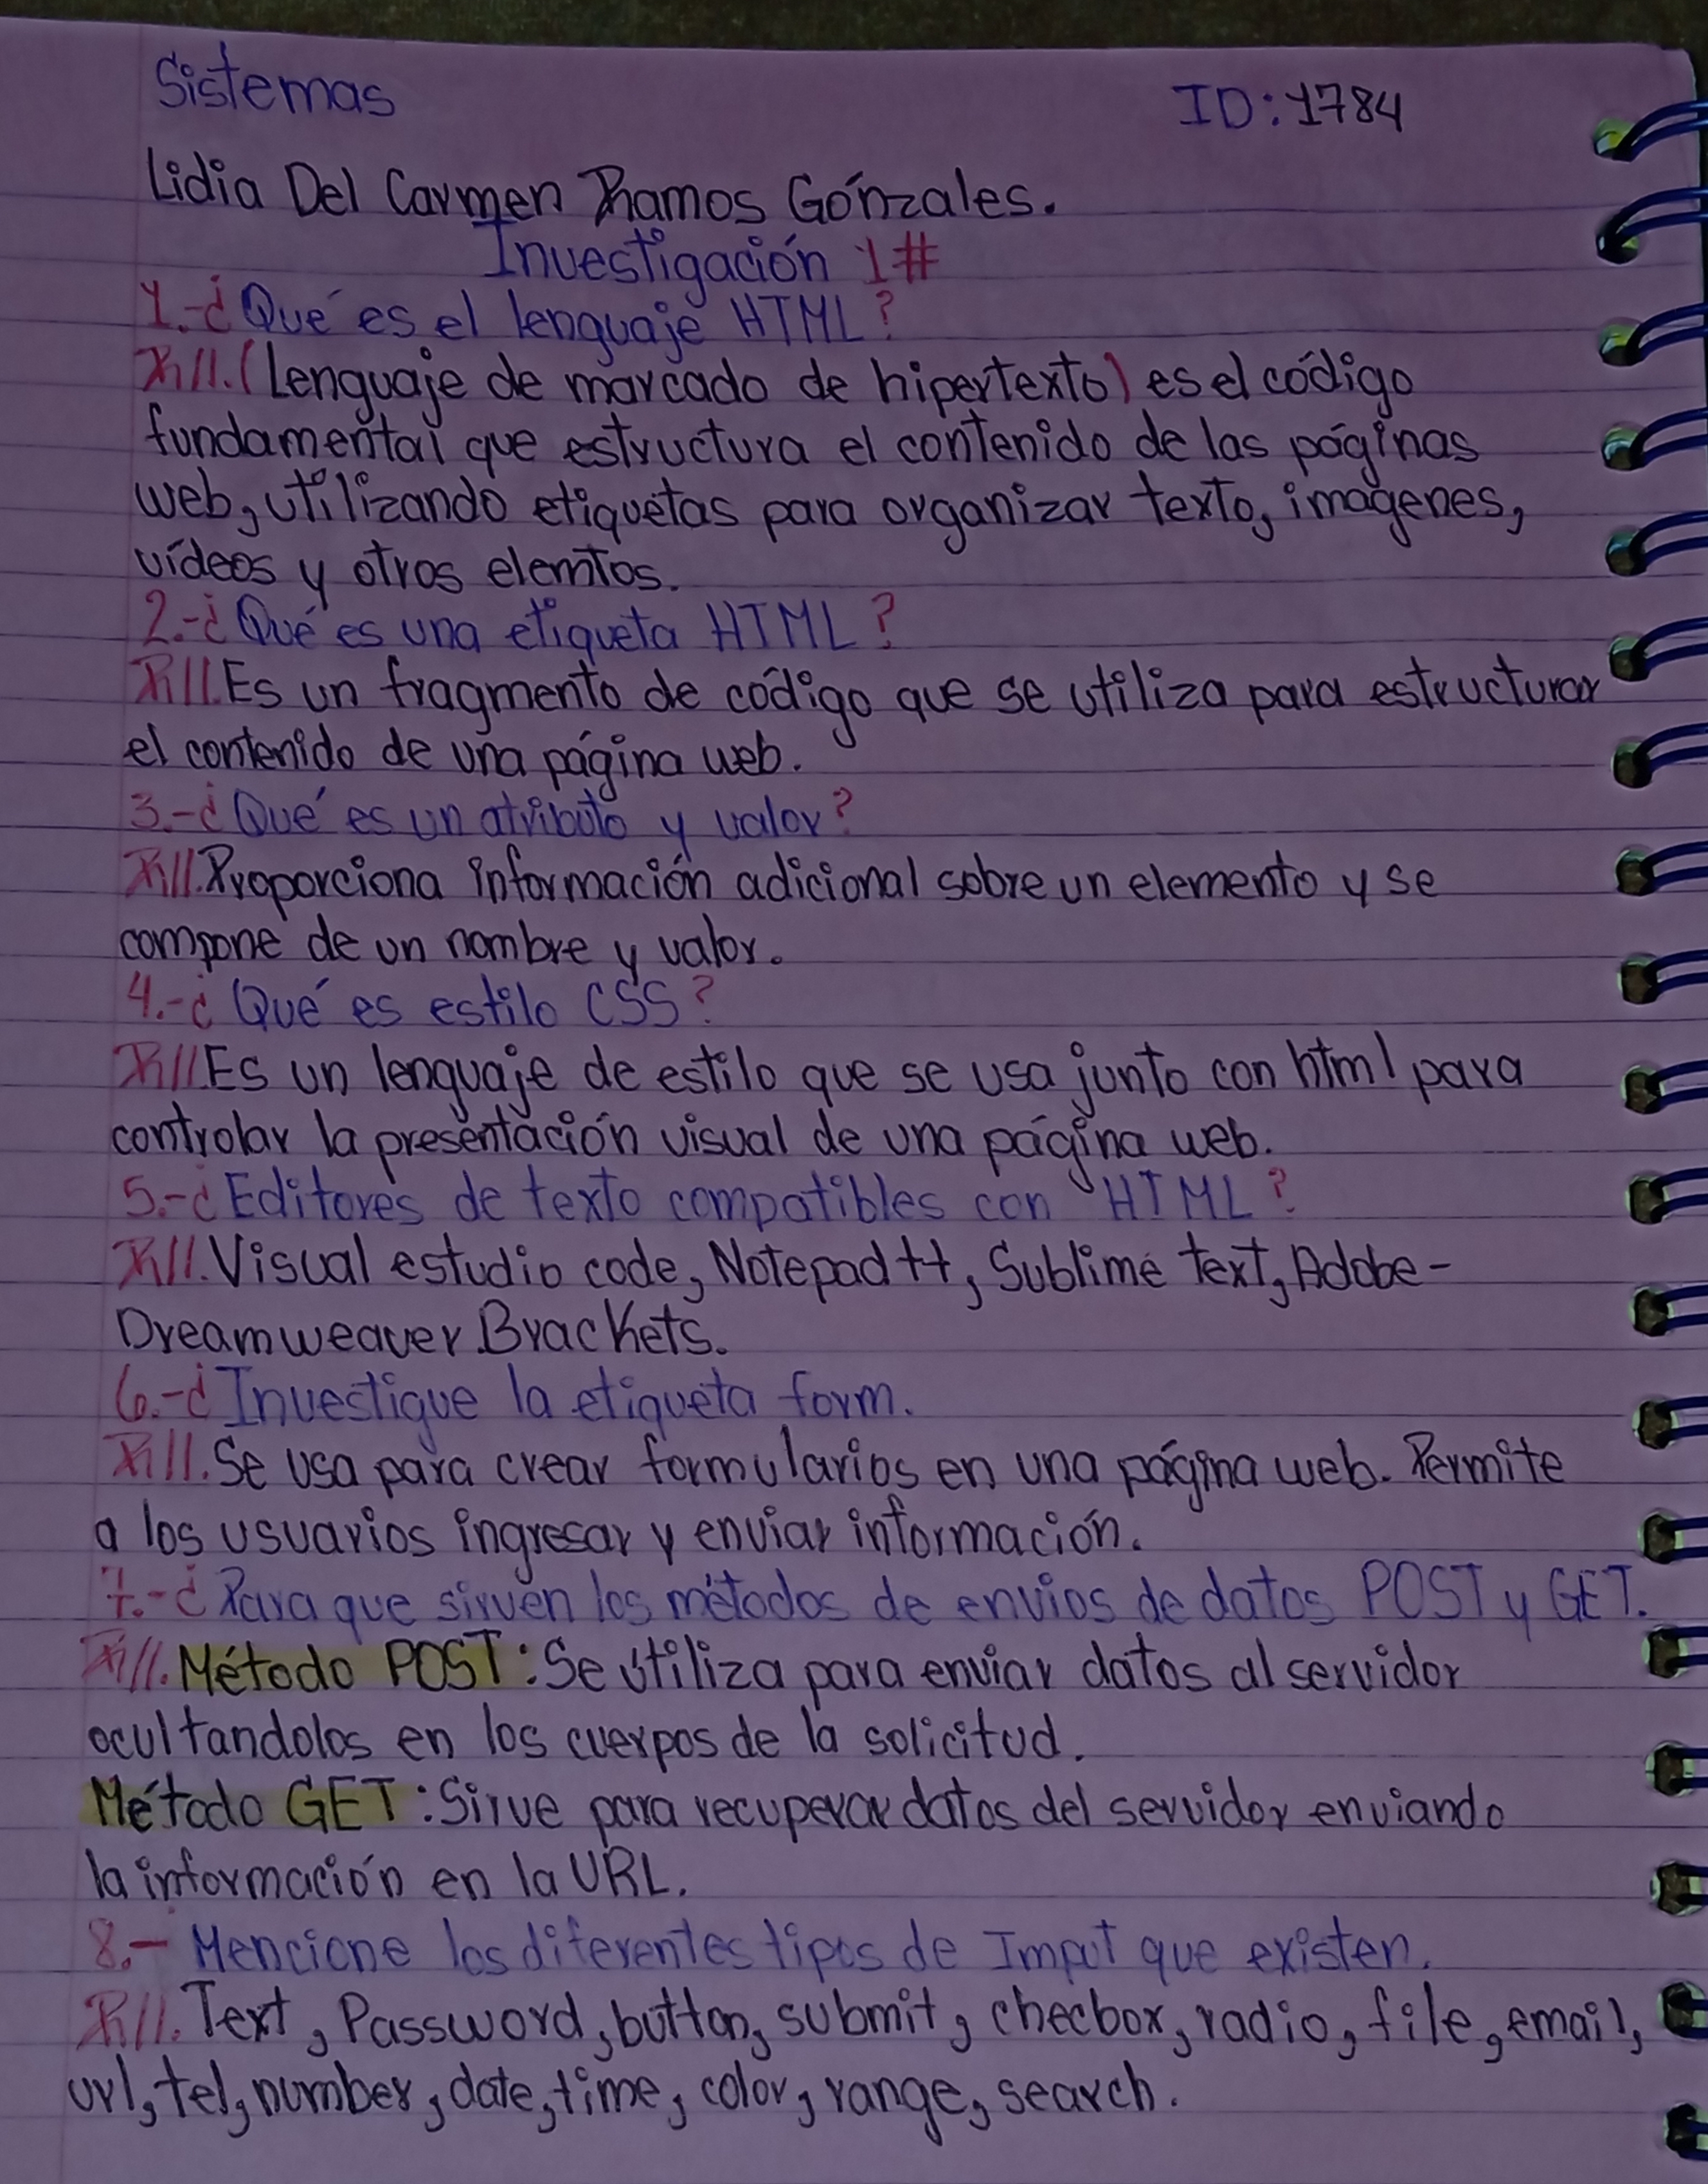 Sistemas
ID: 1784
Lidia Del Carmen Ramos Gónzales.
Investigación 1#
1.-¿Qué es el lenguaje HTML?
R//.(Lenguaje de marcado de hipertexto) es el código
fundamental que estructura el contenido de las páginas
web, utilizando etiquetas para organizar texto, imágenes,
vídeos y otros elemtos.
2.-¿Qué es una etiqueta HTML?
R//.Es un fragmento de código que se utiliza para estructurar
el contenido de una página web.
3.-¿Qué es un atributo y valor?
R//.Proporciona información adicional sobre un elemento y se
compone de un nombre y valor.
4.-¿Qué es estilo CSS?
R//Es un lenguaje de estilo que se usa junto con html para
controlar la presentación visual de una página web.
5.-¿Editores de texto compatibles con HTML?
R//.Visual estudio code, Notepad++, Sublime text, Adobe-
Dreamweaver.Brackets.
6.-¿Investigue la etiqueta form.
R//.Se usa para crear formularios en una página web. Permite
a los usuarios ingresar y enviar información.
7.-¿Para que sirven los métodos de envios de datos POST y GET.
R//.Método POST: Se utiliza para enviar datos al servidor
ocultandolos en los cuerpos de la solicitud.
Método GET: Sirve para recuperar datos del servidor enviando
la información en la URL.
8.- Mencione los diferentes tipos de Imput que existen.
R//.Text, Password, button, submit, checbox, radio, file, email,
url, tel, number, date, time, color, range, search.